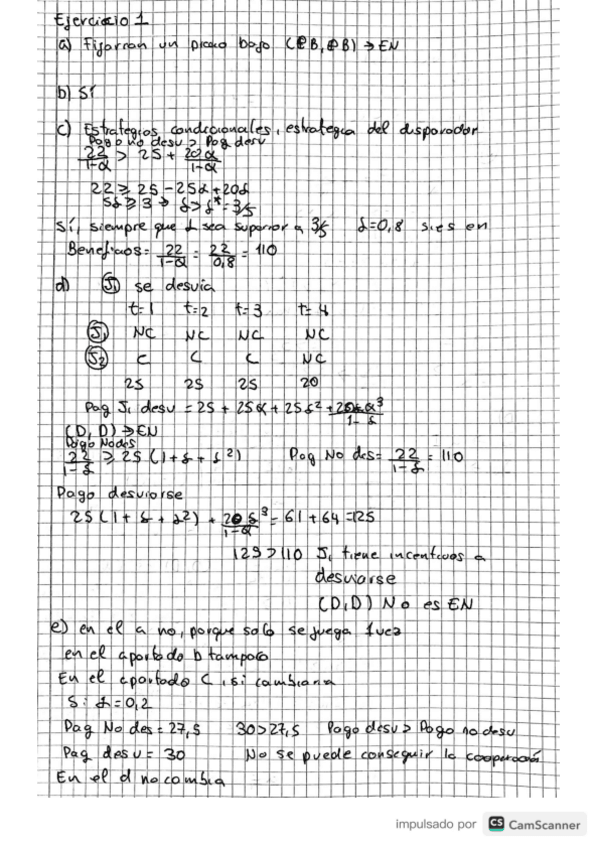 Ejercicio 1
a) Fijarran un precio bajo (PB, PB) → EN
b) Sí
c) Estrategias condicionales, estrategia del disparador
Pago no desv > Pag desv
22/1-α > 25 + 20α/1-α
22 ≥ 25 - 25δ + 20δ
5δ ≥ 3 → δ > δ* = 3/5
Sí, siempre que δ sea superior a 3/5 δ=0,8 si es en
Beneficios = 22/1-α = 22/0,8 = 110
d) J1 se desvia
t=1 t=2 t=3 t=4
J1 NC NC NC NC
J2 C C C NC
25 25 25 20
Pag J1 desv = 25 + 25α + 25δ² + 20*α³/1-δ
(D, D) → EN
Pago Nodes
22/1-δ ≥ 25 (1 + δ + δ²) Pag No des = 22/1-δ = 110
Pago desviarse
25 (1 + δ + δ²) + 20δ³/1-α = 61 + 64 = 125
125 > 110 J1 tiene incentivos a
desviarse
(D, D) No es EN
e) en el a no, porque solo se juega 1 vez
en el apartado b tampoco
En el apartado C, si cambiaria
Si δ=0,2
Pag No des = 27,5 30>27,5 Pago desv > Pago no desv
Pag desv = 30 No se puede conseguir la cooperación
En el d no cambia
impulsado por CS CamScanner